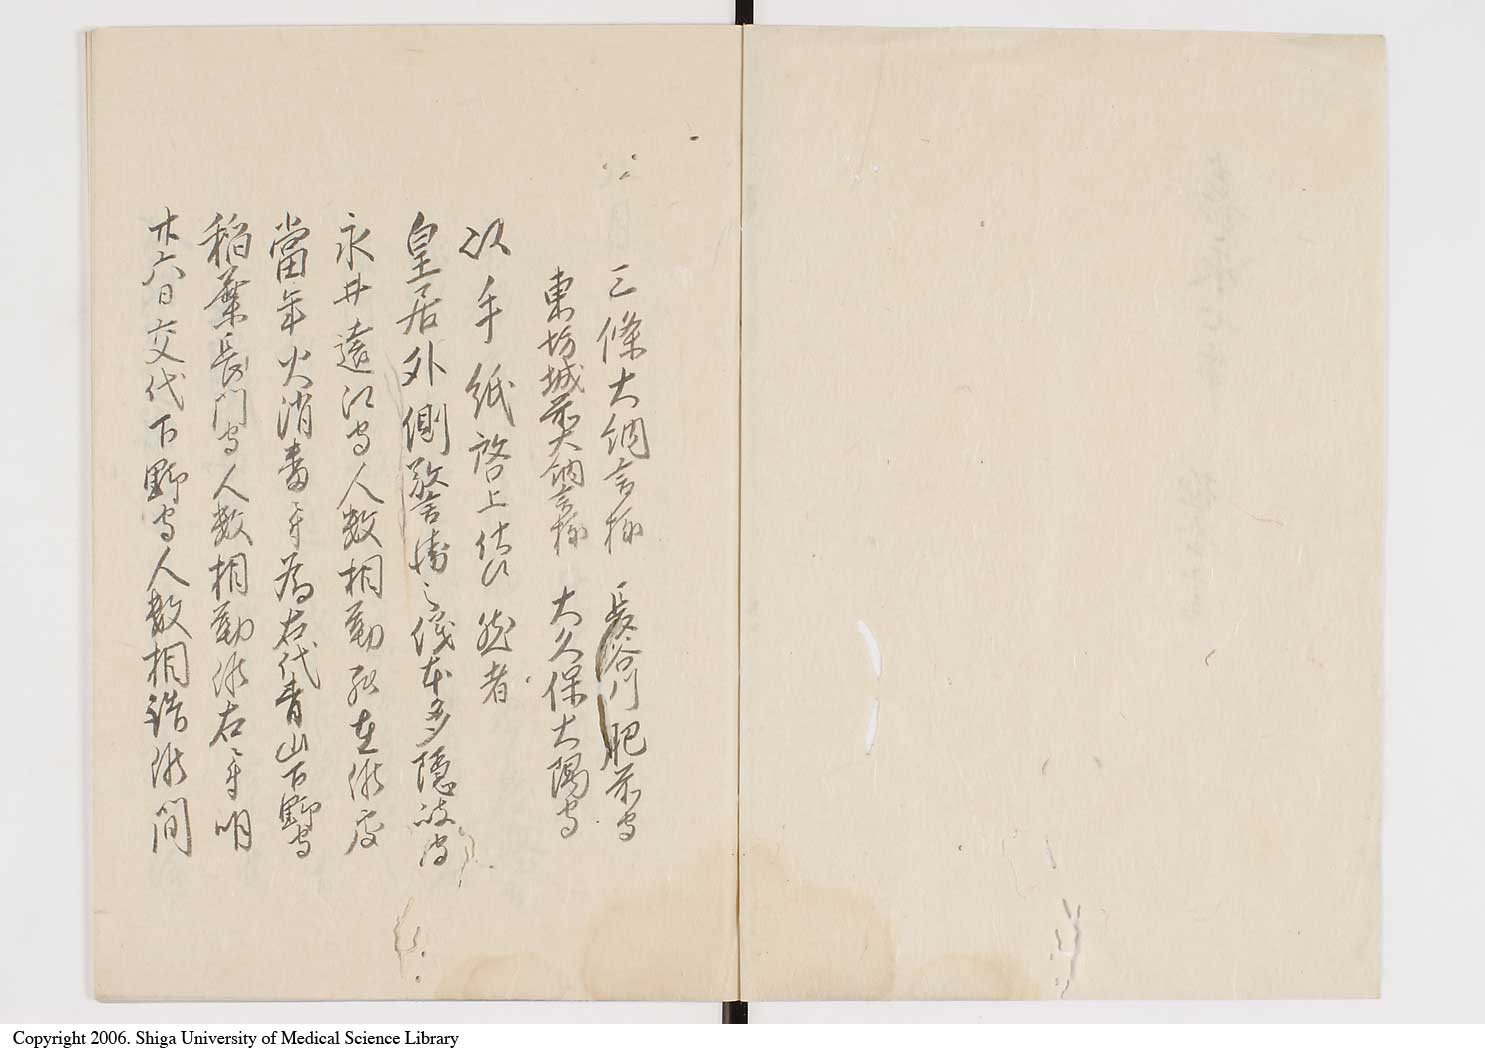 三條大納言様 長谷川肥前守
東坊城前大納言様 大久保大隅守
以手紙啓上仕候然者
皇居外側警衛之儀本多隠岐守
永井遠江守人数相勤罷在候処
當年火消番ニ付為右代青山下野守
稲葉長門守人数相勤候右ニ付明
廿六日交代下野守人数相詰候間
Copyright 2006. Shiga University of Medical Science Library